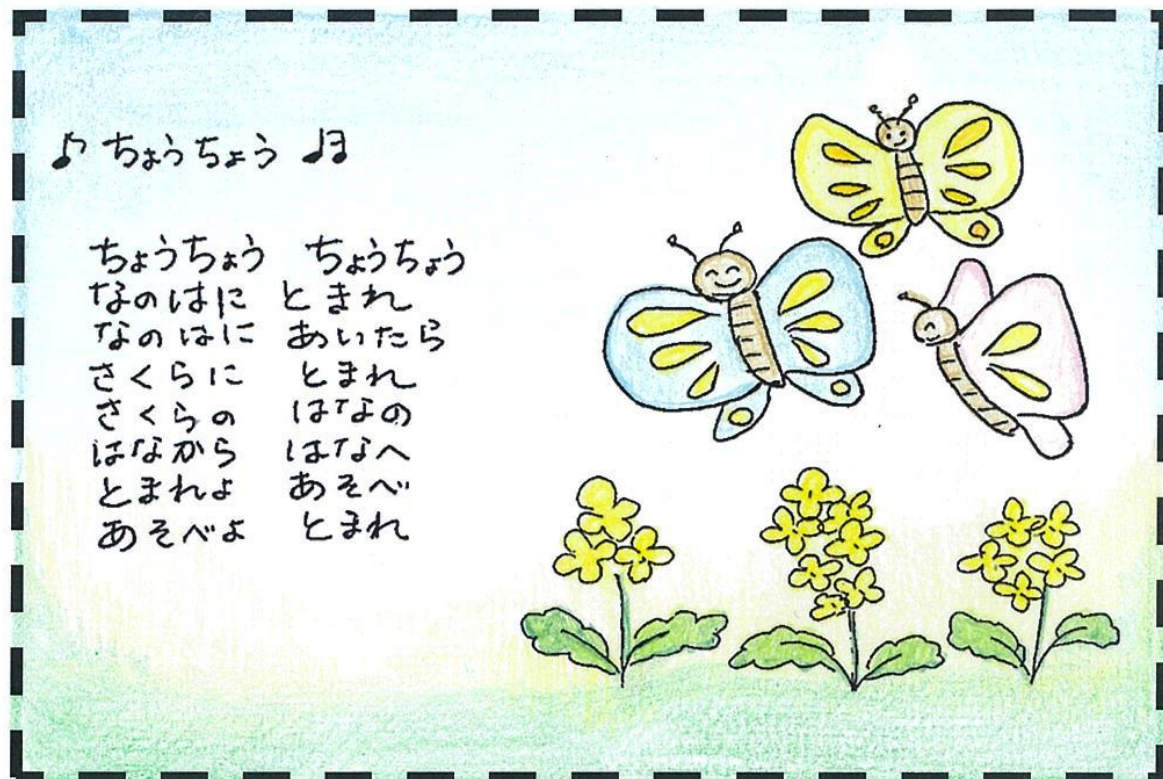 ♪ ちょうちょう ♫
ちょうちょう ちょうちょう
なのはに とまれ
なのはに あいたら
さくらに とまれ
さくらの はなの
はなから はなへ
とまれよ あそべ
あそべよ とまれ